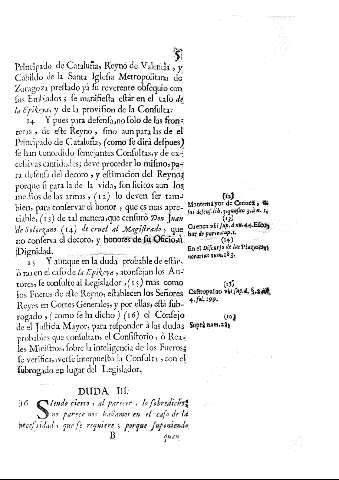 5
Principado de Cataluña, Reyno de Valencia, y
Cabildo de la Santa Iglesia Metropolitana de
Zaragoza prestado yà su reverente obsequio con
sus Embiados; se manifiesta estàr en el caso de
la Epikeya, y de la provision de la Consulta:
24 Y pues para defensa, no solo de las fron-
teras, de este Reyno, sino aun para las de el
Principado de Cataluña, (como se dirà despues)
se han concedido semejantes Consultas, y de ex-
cesivas cantidades; deve proceder lo mismo, pa-
ra defensa del decoro, y estimacion del Reyno;
porque si para la de la vida, son licitos aun los
medios de las armas, (12) lo deven ser tam-
bien, para conservar el honor, que es mas apre-
ciable, (13) de tal manera, que censurò Don Juan
de Solorzano (14) de cruel al Magistrado, que
no conserva el decoro, y honores de su Oficio, ò
Dignidad.
25 Y aunque en la duda probable de estàr,
ò no en el caso de la Epikeya, aconsejan los Au-
tores, se consulte al Legislador, (15) mas como
los Fueros de este Reyno, establecen los Señores
Reyes en Cortes Generales, y por ellas, està sub-
rogado, (como se ha dicho) (16) el Consejo
de el Justicia Mayor, para responder à las dudas
probables que consultan, el Consistorio, ò Rea-
les Ministros, sobre la inteligencia de los Fueros;
se verifica, averse interpuesto la Consulta, con el
subrogado en lugar del Legislador.
DUDA III.
26 Siendo cierto, al parecer, lo sobredicho;
nos parece nos hallamos en el caso de la
necessidad, que se requiere; porque suponiendo
B
quan
(12)
(13)
(14)
En el Discurso de las Plazas
(15)
Castropalao ubi sup. d.
4. fol. 199.
(16)
Suprà num.